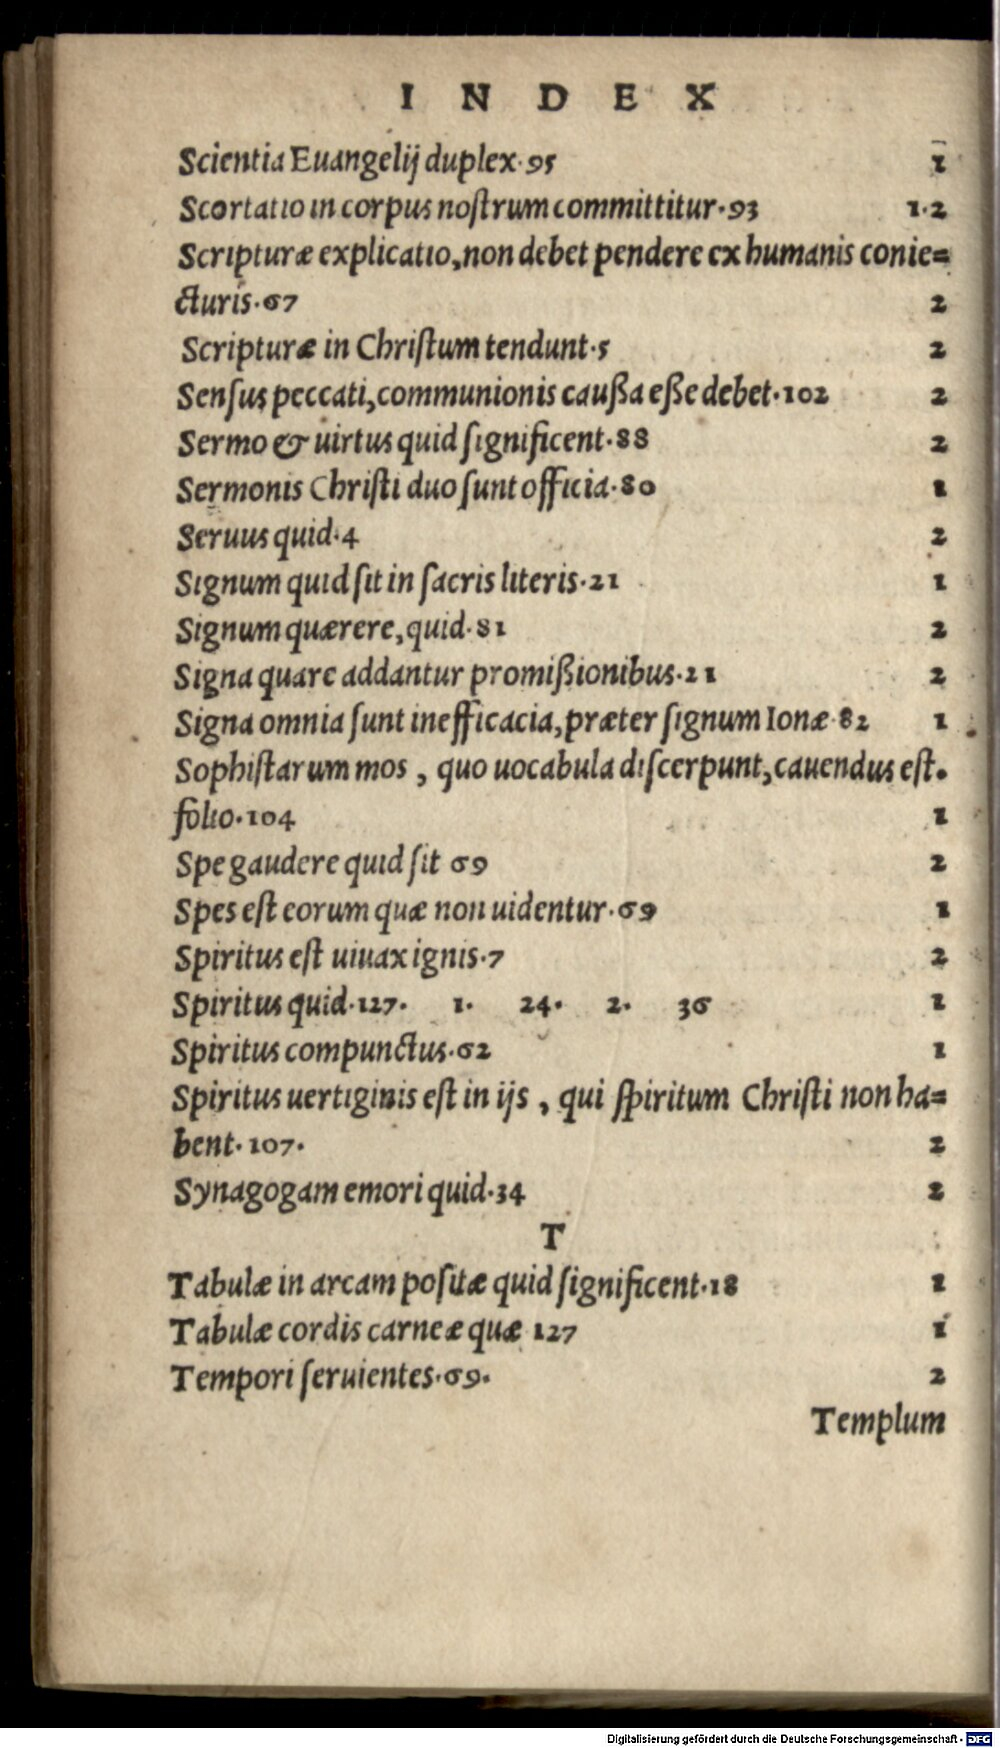 INDEX
Scientia Euangelij duplex·95 1
Scortatio in corpus noſtrum committitur·93 1·2
Scripturæ explicatio, non debet pendere ex humanis conie=
cturis·67 2
Scripturæ in Chriſtum tendunt·5 2
Senſus peccati, communionis cauſſa eſſe debet·102 2
Sermo & uirtus quid ſignificent·88 2
Sermonis Chriſti duo ſunt officia·80 1
Seruus quid·4 2
Signum quid ſit in ſacris literis·21 1
Signum quærere, quid·81 2
Signa quare addantur promiſſionibus·21 2
Signa omnia ſunt inefficacia, præter ſignum Ionæ·82 1
Sophiſtarum mos, quo uocabula diſcerpunt, cauendus eſt.
folio·104 1
Spe gaudere quid ſit 69 2
Spes eſt eorum quæ non uidentur·69 1
Spiritus eſt uiuax ignis·7 2
Spiritus quid·127. 1. 24. 2. 36 1
Spiritus compunctus·62 1
Spiritus uertiginis eſt in ijs, qui ſpiritum Chriſti non ha=
bent·107. 2
Synagogam emori quid·34 2
T
Tabulæ in arcam poſitæ quid ſignificent·18 1
Tabulæ cordis carneæ quæ 127 1
Tempori ſeruientes·69. 2
Templum
Digitalisierung gefördert durch die Deutsche Forschungsgemeinschaft - DFG